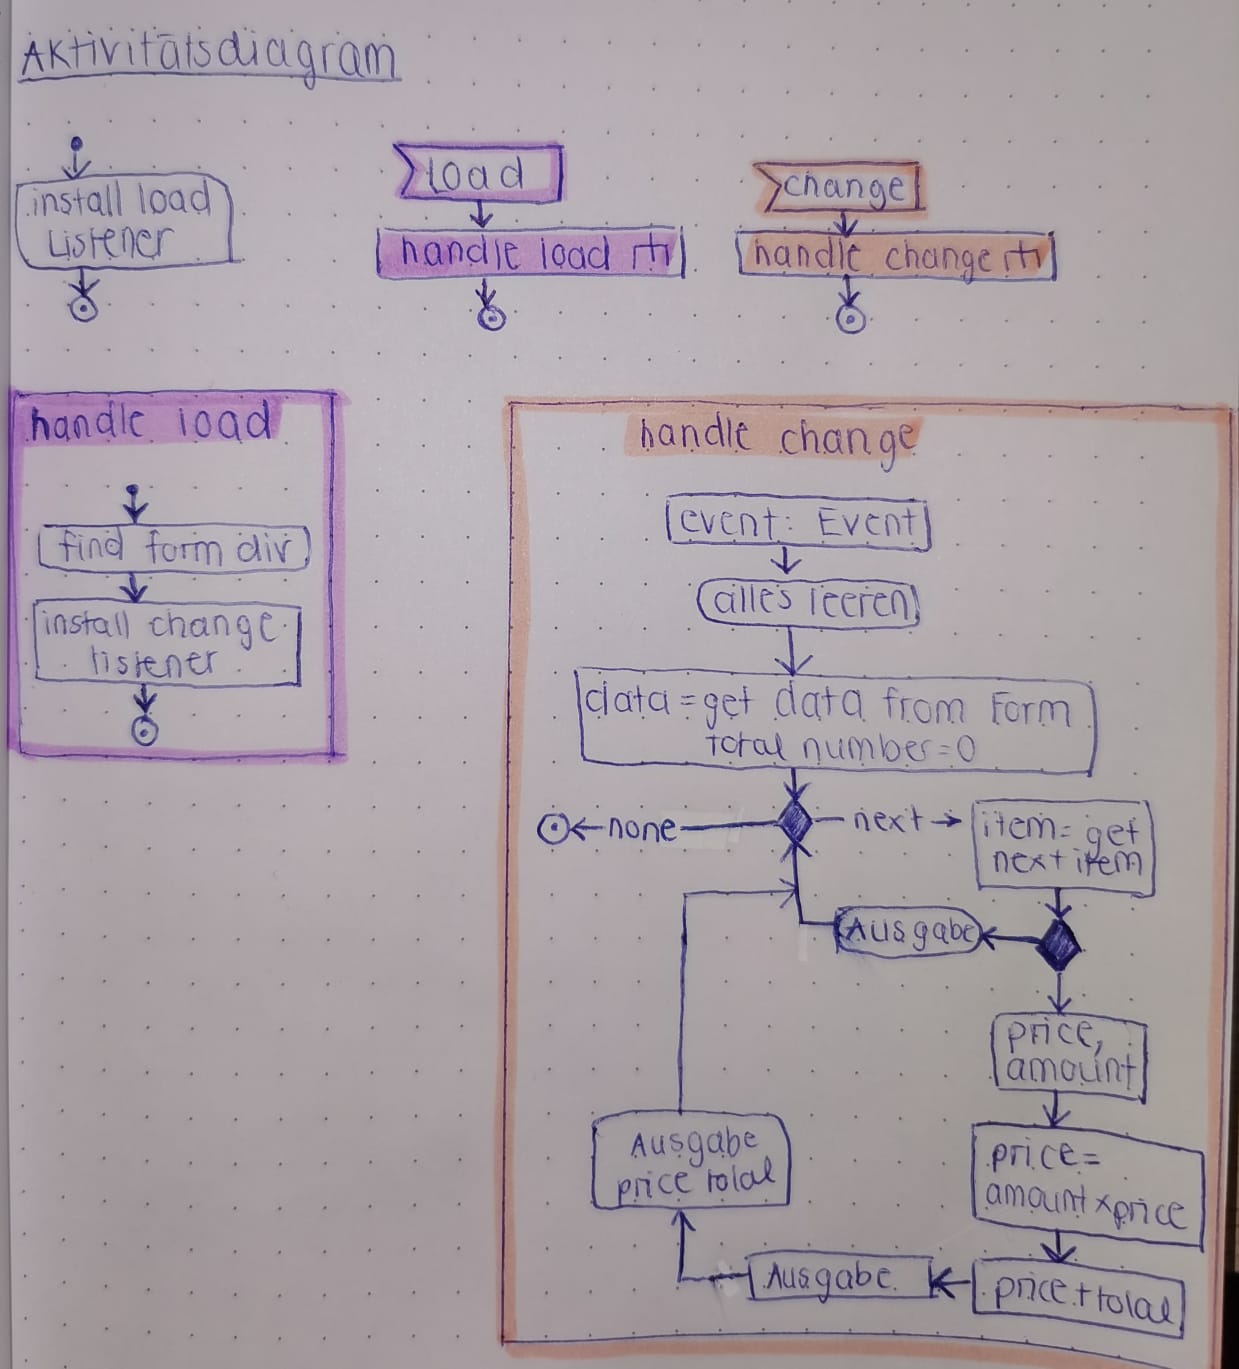 Aktivitätsdiagram
install load
Listener
load
handle load
change
handle change
handle load
find form div
install change
listener
handle change
event: Event
alles leeren
data = get data from Form
total number = 0
none
next
item = get
next item
Ausgabe
price,
amount
price =
amount x price
price + total
Ausgabe
Ausgabe
price total